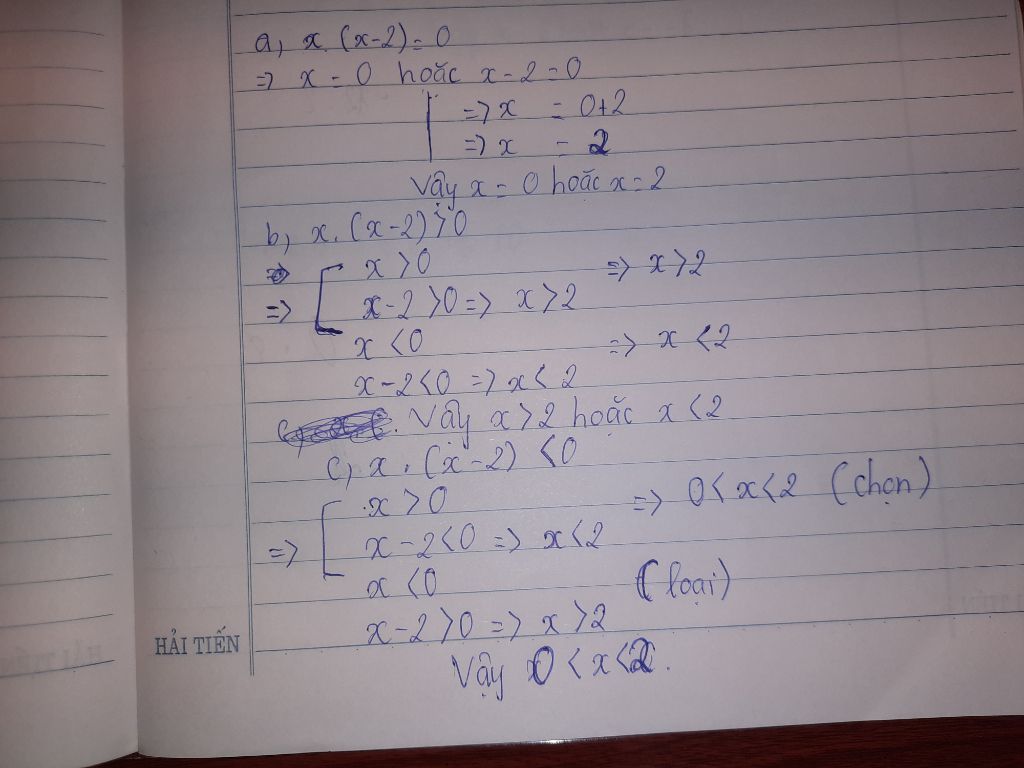 a, x.(x-2)=0
=> x = 0 hoặc x-2=0
=> x = 0+2
=> x = 2
Vậy x = 0 hoặc x = 2
b, x.(x-2)>0
x >0 => x>2
=> x-2 >0 => x >2
x <0 => x <2
x-2<0 => x< 2
Vậy x >2 hoặc x <2
c, x.(x-2) <0
x >0 => 0< x <2 (chọn)
=> x-2<0 => x<2
x <0 (loại)
x-2>0 => x >2
HẢI TIẾN
Vậy 0 < x <2.